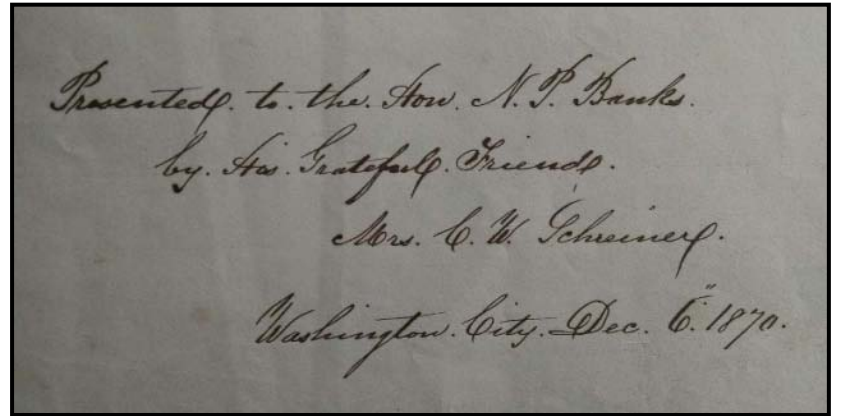 Presented. to. the. Hon. N. P. Banks.
by. His. Grateful. Friend.
Mrs. C. W. Schreiner.
Washington. City. Dec. 6." 1870.